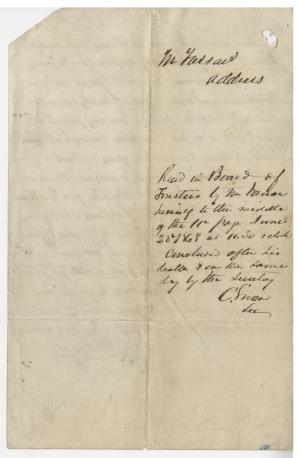 Mr Vassar's
Address
Read in Board of
Trustees by Mr Vassar
himself to the middle
of the 11th page June
23d 1868 at
Concluded after his
death & on the same
day by the Secretary
C. Swan
Sec